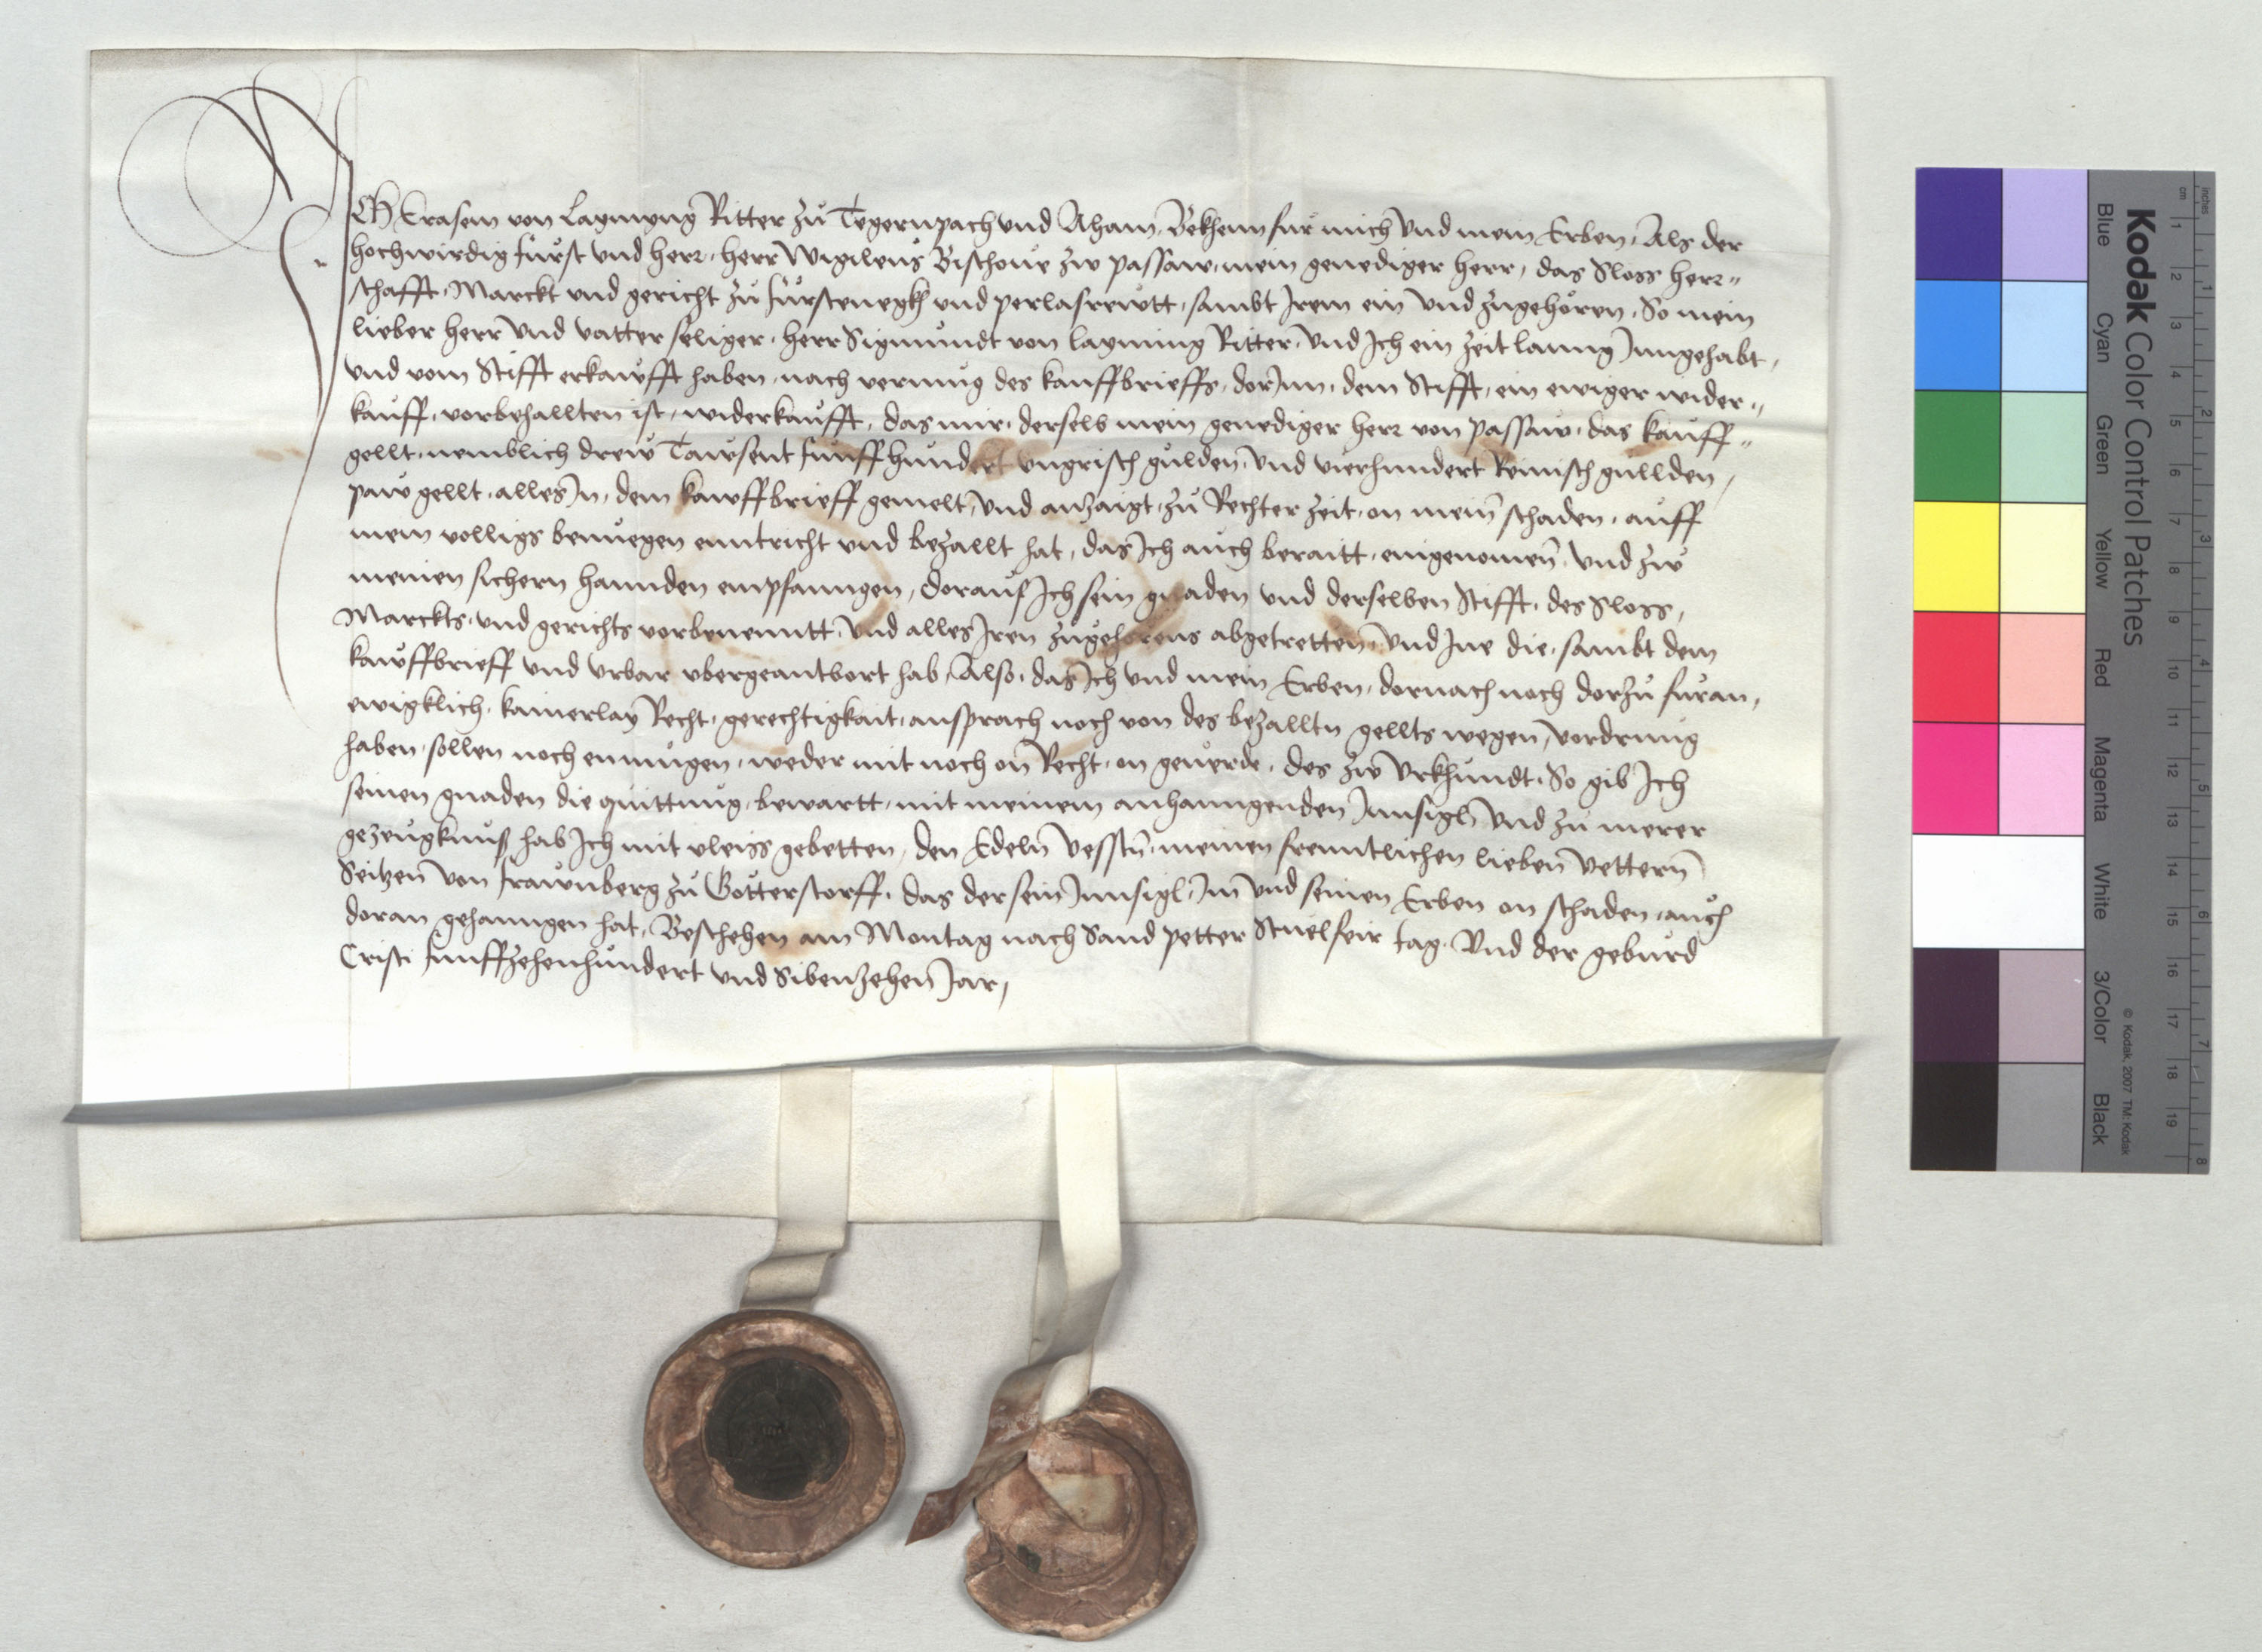 ICH Erasem von Laymyng Ritter zů Tegernpach und Aham, Bekhenn fůr mich und mein Erben, Als der
hochwirdig fůrst und herr, herr Wigileus Bischoue zw passaw, mein genediger herr, das Sloss herr-
schafft, Marckt und gericht zů fůrstenegkh und perlasrewtt, sambt Irem ein und zugehören, So mein
lieber herr und vatter säliger, herr Sigmůndt von layming Ritter, und Ich ein zeit lanng Inngehabt,
und vom Stifft erkawfft haben, nach vermůg des kauffbrieffs, dorInn, dem Stifft, ein ewiger wider-
kauff, vorbehallten ist, widerkaufft, das mir, derselb mein genediger herr von passaw, das kauff-
gellt, nemblich drew Tawsent fůnffhundert ungrisch gulden, und vierhundert Reinisch gullden,
paw gellt, alles In, dem kawffbrieff gemelt, und anzaigt, zů Rechter zeit, on mein schaden, auff
mein volligs benuegen enntricht und bezallt hat, das Ich auch beraitt, eingenomen, und zw
meinen sichern hannden empfanngen, dorauf Ich sein gnaden und derselben Stifft, des Sloss,
Marckts, und gerichts vorbenenntt, und alles Iren zugehorens abgetretten, und Ine die, sambt dem
kawffbrieff und urbar ubergeantbort hab, Also, das Ich und mein Erben, dornach noch dorzů fůran,
ewigklich, kainerlay Recht, gerechtigkait, ansprach noch von des bezalltn gellts wegen, vordrung
haben, sollen noch enmůgen, weder mit noch on Recht, on geuerde, des zw urkhundt, So gib Ich
seinen gnaden die quittung, bewartt, mit meinem anhanngenden Innsigl, und zů merer
gezeugknuß hab Ich mit vleiss gebetten, den Edeln vesstn, meinen freuntlichen lieben vettern
Seitzen von frawnberg zů Gotterstorff, das der sein Innsigl, Im und seinen Erben on schaden, auch
doran gehanngen hat, Beschehen am Montag nach Sand petter Stuelfeir tag, Und der geburd
Cristi funffzehenhundert und Sibenzehen Jar,
Kodak Color Control Patches
Blue Cyan Green Yellow Red Magenta White 3/Color Black
© Kodak, 2007 TM: Kodak
cm 1 2 3 4 5 6 7 8 9 10 11 12 13 14 15 16 17 18 19
inches 1 2 3 4 5 6 7 8